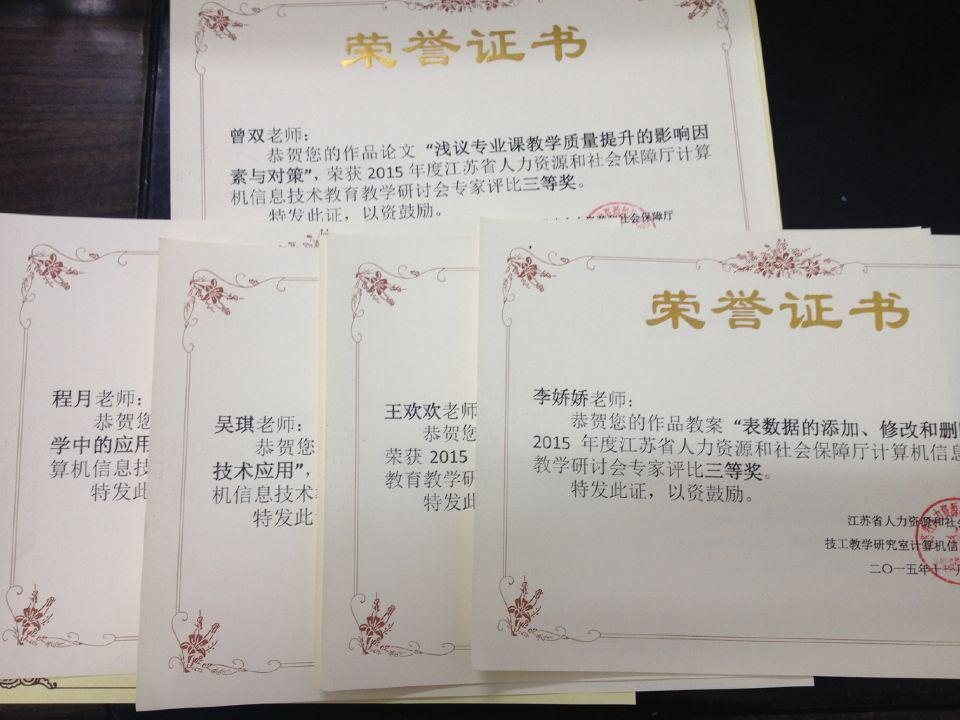 荣誉证书
曾双老师：
恭贺您的作品论文“浅议专业课教学质量提升的影响因
素与对策”，荣获 2015 年度江苏省人力资源和社会保障厅计算
机信息技术教育教学研讨会专家评比三等奖。
特发此证，以资鼓励。
社会保障厅
程月老师：
恭贺您
学中的应用
算机信息技
特发此
吴琪老师：
恭贺您
技术应用”，
机信息技术
特发此
王欢欢老师
恭贺您
荣获 2015
教育教学研
特发此
荣誉证书
李娇娇老师：
恭贺您的作品教案“表数据的添加、修改和删
2015 年度江苏省人力资源和社会保障厅计算机信息
教学研讨会专家评比三等奖。
特发此证，以资鼓励。
江苏省人力资源和社会
技工教学研究室计算机信
二〇一五年十一月